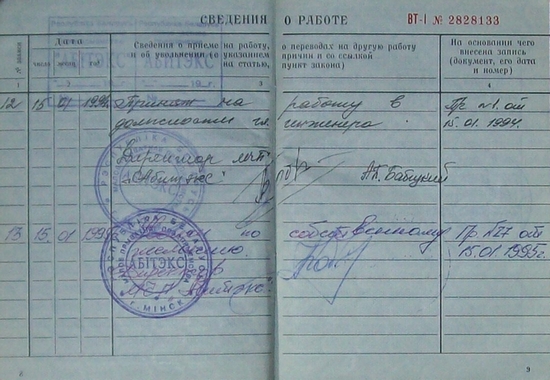 СВЕДЕНИЯ О РАБОТЕ ВТ-I № 2828133
№ записи
Дата
число
год
Сведения о приеме на работу, о переводах на другую работу
об увольнении (с указанием причин и со ссылкой
на статью, пункт закона)
На основании чего
внесена запись
(документ, его дата
и номер)
АБІТЭКС
12 15 01 1994 Принят на работу в Пр №1 от
должность гл. инженера 15.01.1994.
Директор МГП
"Абитэкс" А.П. Бабицкий
13 15 01 по собственному Пр №27 от
желанию. 15.01.1995г.
Директор
МГП "Абитэкс"
АБІТЭКС
г. МІНСК
8
9